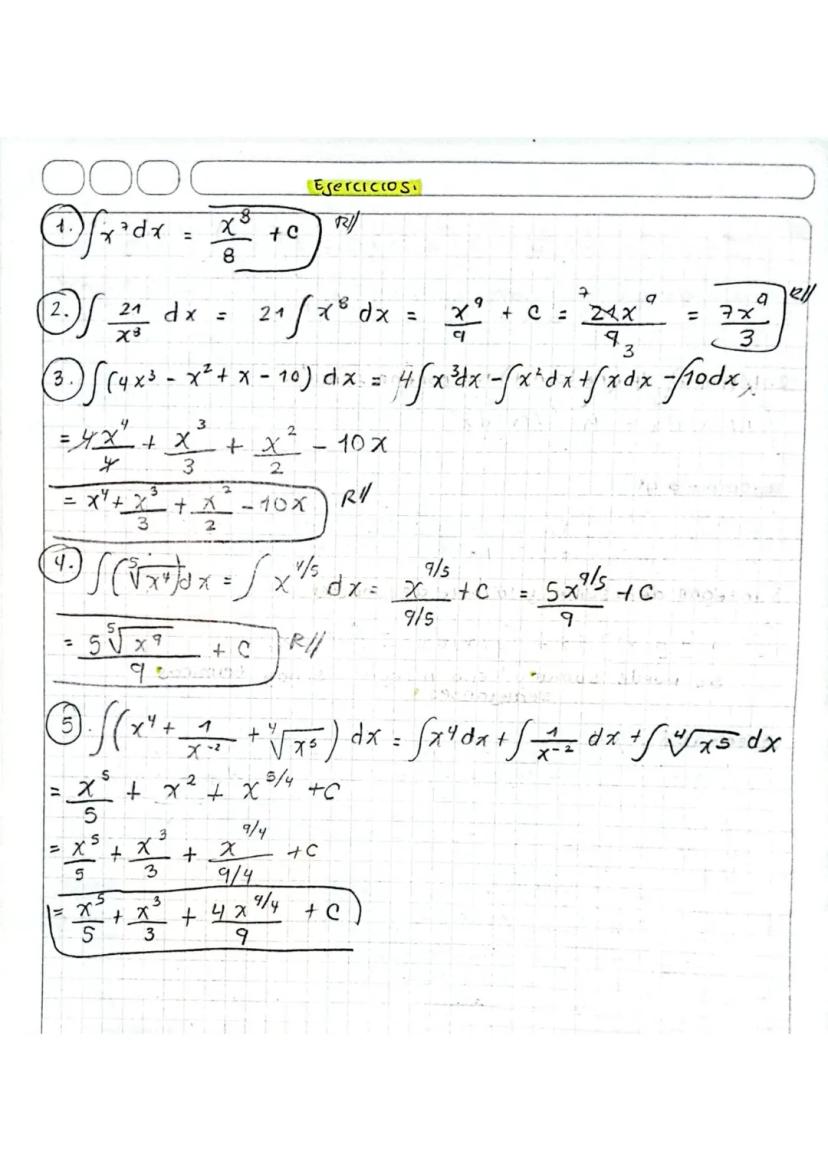 Ejercicios.
1. ∫x⁷dx = x⁸/8 + C R//
2. ∫ 21/x⁸ dx = 21∫x⁸ dx = x⁹/9 + C = 7 21x⁹/9 3 = 7x⁹/3 R//
3. ∫(4x³ - x² + x - 10) dx = 4∫x³dx - ∫x²dx + ∫xdx - ∫10dx
= 4x⁴/4 + x³/3 + x²/2 - 10x
= x⁴ + x³/3 + x²/2 - 10x R//
4. ∫(⁵√x⁴)dx = ∫x^4/5 dx = x^9/5/9/5 + C = 5x^9/5/9 + C
= 5 ⁵√x⁹/9 + C R//
5. ∫(x⁴ + 1/x⁻² + ⁴√x⁵) dx = ∫x⁴dx + ∫1/x⁻² dx + ∫⁴√x⁵ dx
= x⁵/5 + x² + x^5/4 + C
= x⁵/5 + x³/3 + x^9/4/9/4 + C
= x⁵/5 + x³/3 + 4x^9/4/9 + C